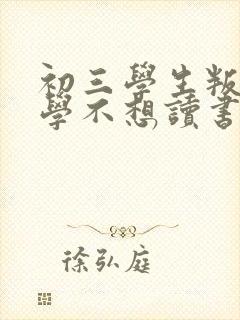 初三學生叛
學不想讀書
徐弘庭